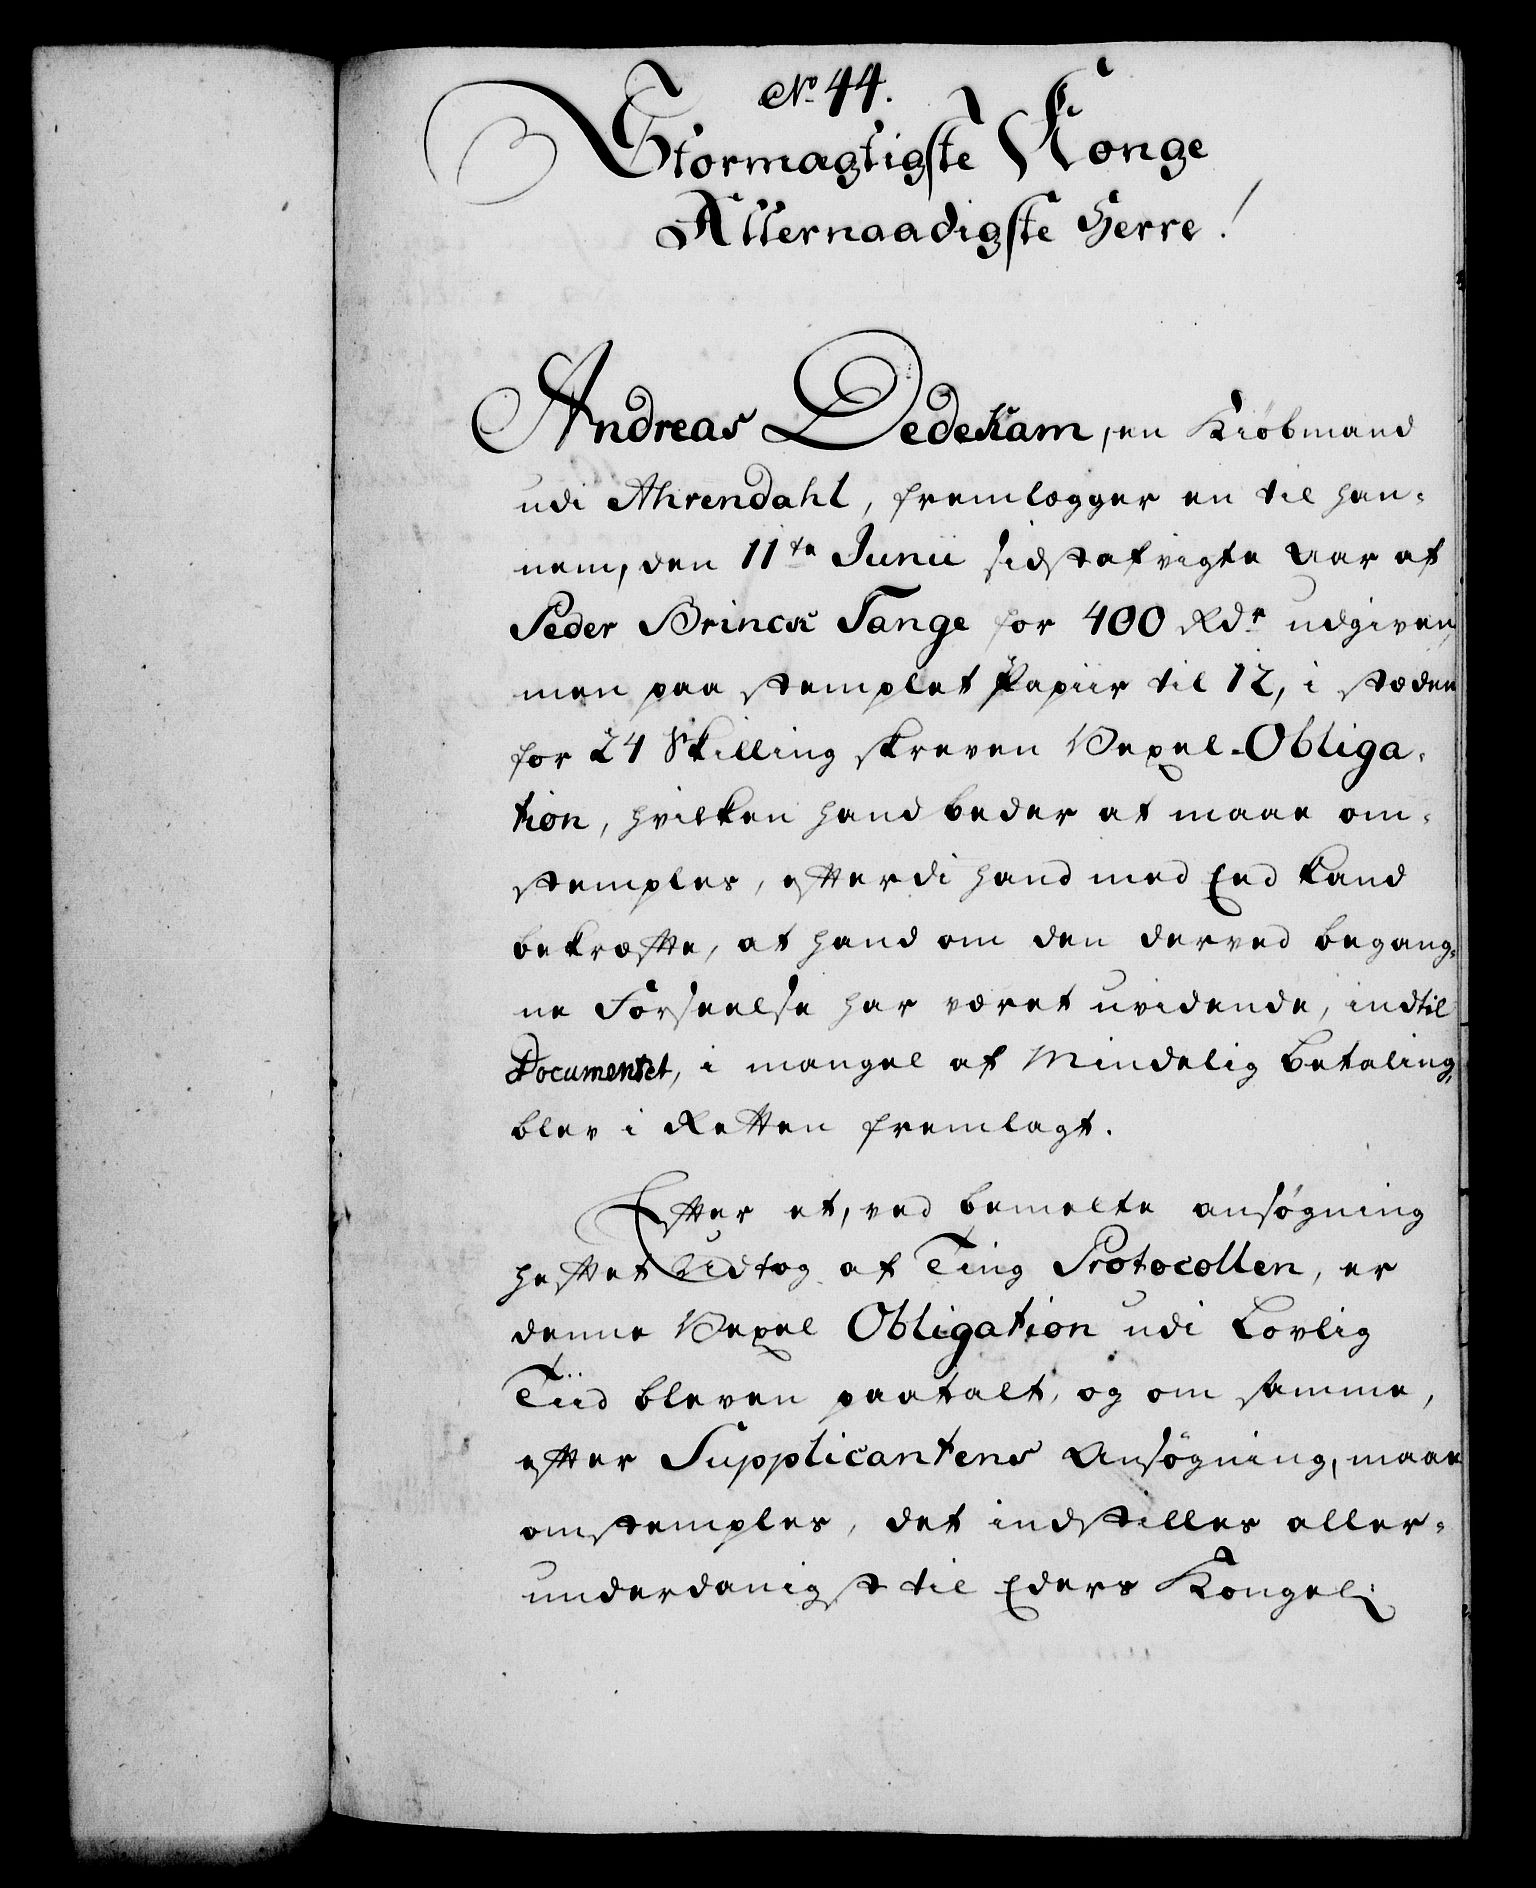 No. 44.
Stormægtigste Konge
Allernaadigste Herre!
Andreas Dedekam, en Kiøbmand
udi Ahrendahl, fremlægger en til han-
nem, den 11te Junii sidstafvigte Aar af
Peder Brinck Tange for 400 Rdr udgiven
men paa stemplet Papiir til 12, i stæden
for 24 Skilling skreven Vexel-Obliga-
tion, hvilken hand beder at maae om-
stemples, efterdi hand med Eed kand
bekræfte, at hand om den derved begang-
ne Forseelse har været uvidende, indtil
Documentet, i mangel af Mindelig betaling,
blev i Retten fremlagt.
Efter et, ved bemelte ansøgning
heftet Udtog af Ting Protocollen, er
denne Vexel Obligation udi Lovlig
Tiid bleven paatalt, og om samme,
efter Supplicantens Ansøgning, maae
omstemples, det indstilles aller-
underdanigst til Eders Kongel: